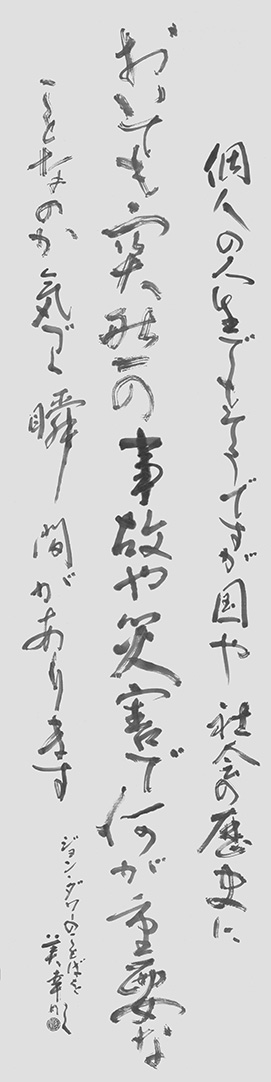 個人の人生でもそうですが国や社会の歴史に
おいても突然の事故や災害で何が重要な
ことなのか気づく瞬間があります
ジョン・ダワーのことばを
美幸かく